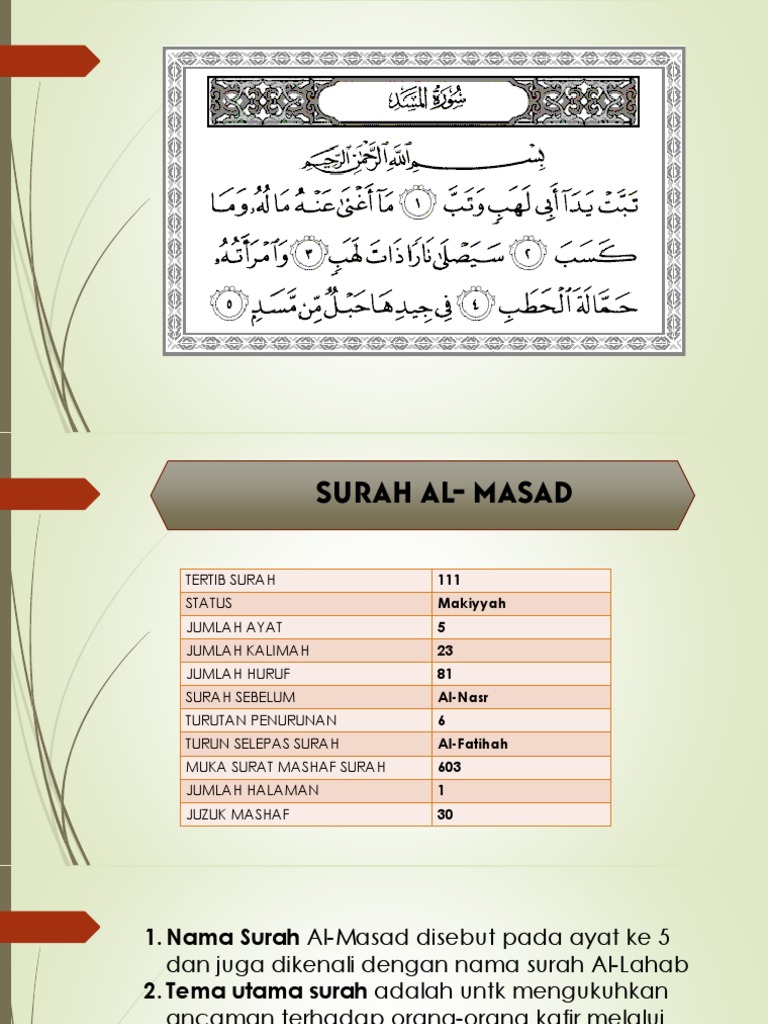 سُورَةُ المَسَدِ
بِسْمِ ٱللَّهِ ٱلرَّحْمَٰنِ ٱلرَّحِيمِ
تَبَّتْ يَدَآ أَبِى لَهَبٍ وَتَبَّ ١ مَآ أَغْنَىٰ عَنْهُ مَالُهُۥ وَمَا
كَسَبَ ٢ سَيَصْلَىٰ نَارًا ذَاتَ لَهَبٍ ٣ وَٱمْرَأَتُهُۥ
حَمَّالَةَ ٱلْحَطَبِ ٤ فِى جِيدِهَا حَبْلٌ مِّن مَّسَدٍ ٥
SURAH AL- MASAD
TERTIB SURAH 111
STATUS Makiyyah
JUMLAH AYAT 5
JUMLAH KALIMAH 23
JUMLAH HURUF 81
SURAH SEBELUM Al-Nasr
TURUTAN PENURUNAN 6
TURUN SELEPAS SURAH Al-Fatihah
MUKA SURAT MASHAF SURAH 603
JUMLAH HALAMAN 1
JUZUK MASHAF 30
1. Nama Surah Al-Masad disebut pada ayat ke 5
dan juga dikenali dengan nama surah Al-Lahab
2. Tema utama surah adalah untk mengukuhkan
ancaman terhadap orang-orang kafir melalui